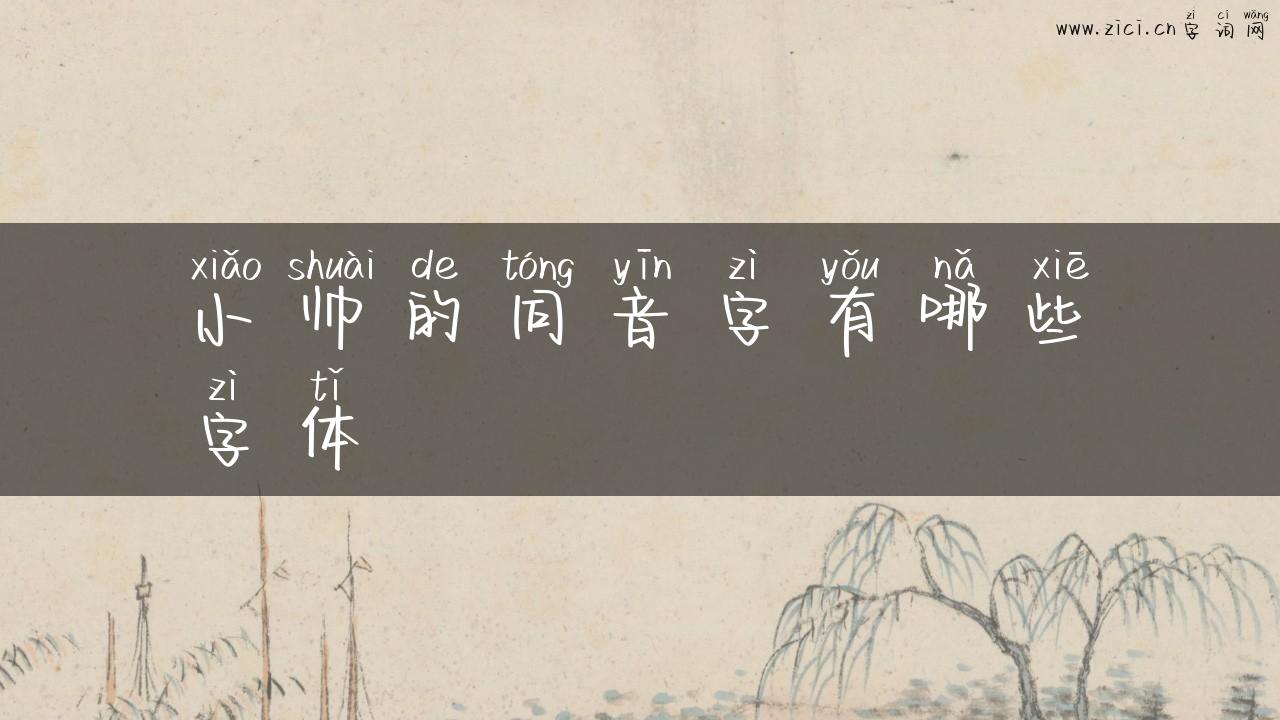 zì cí wǎng
www.zici.cn 字词网
xiǎo shuài de tóng yīn zì yǒu nǎ xiē
小帅的同音字有哪些
zì tǐ
字体